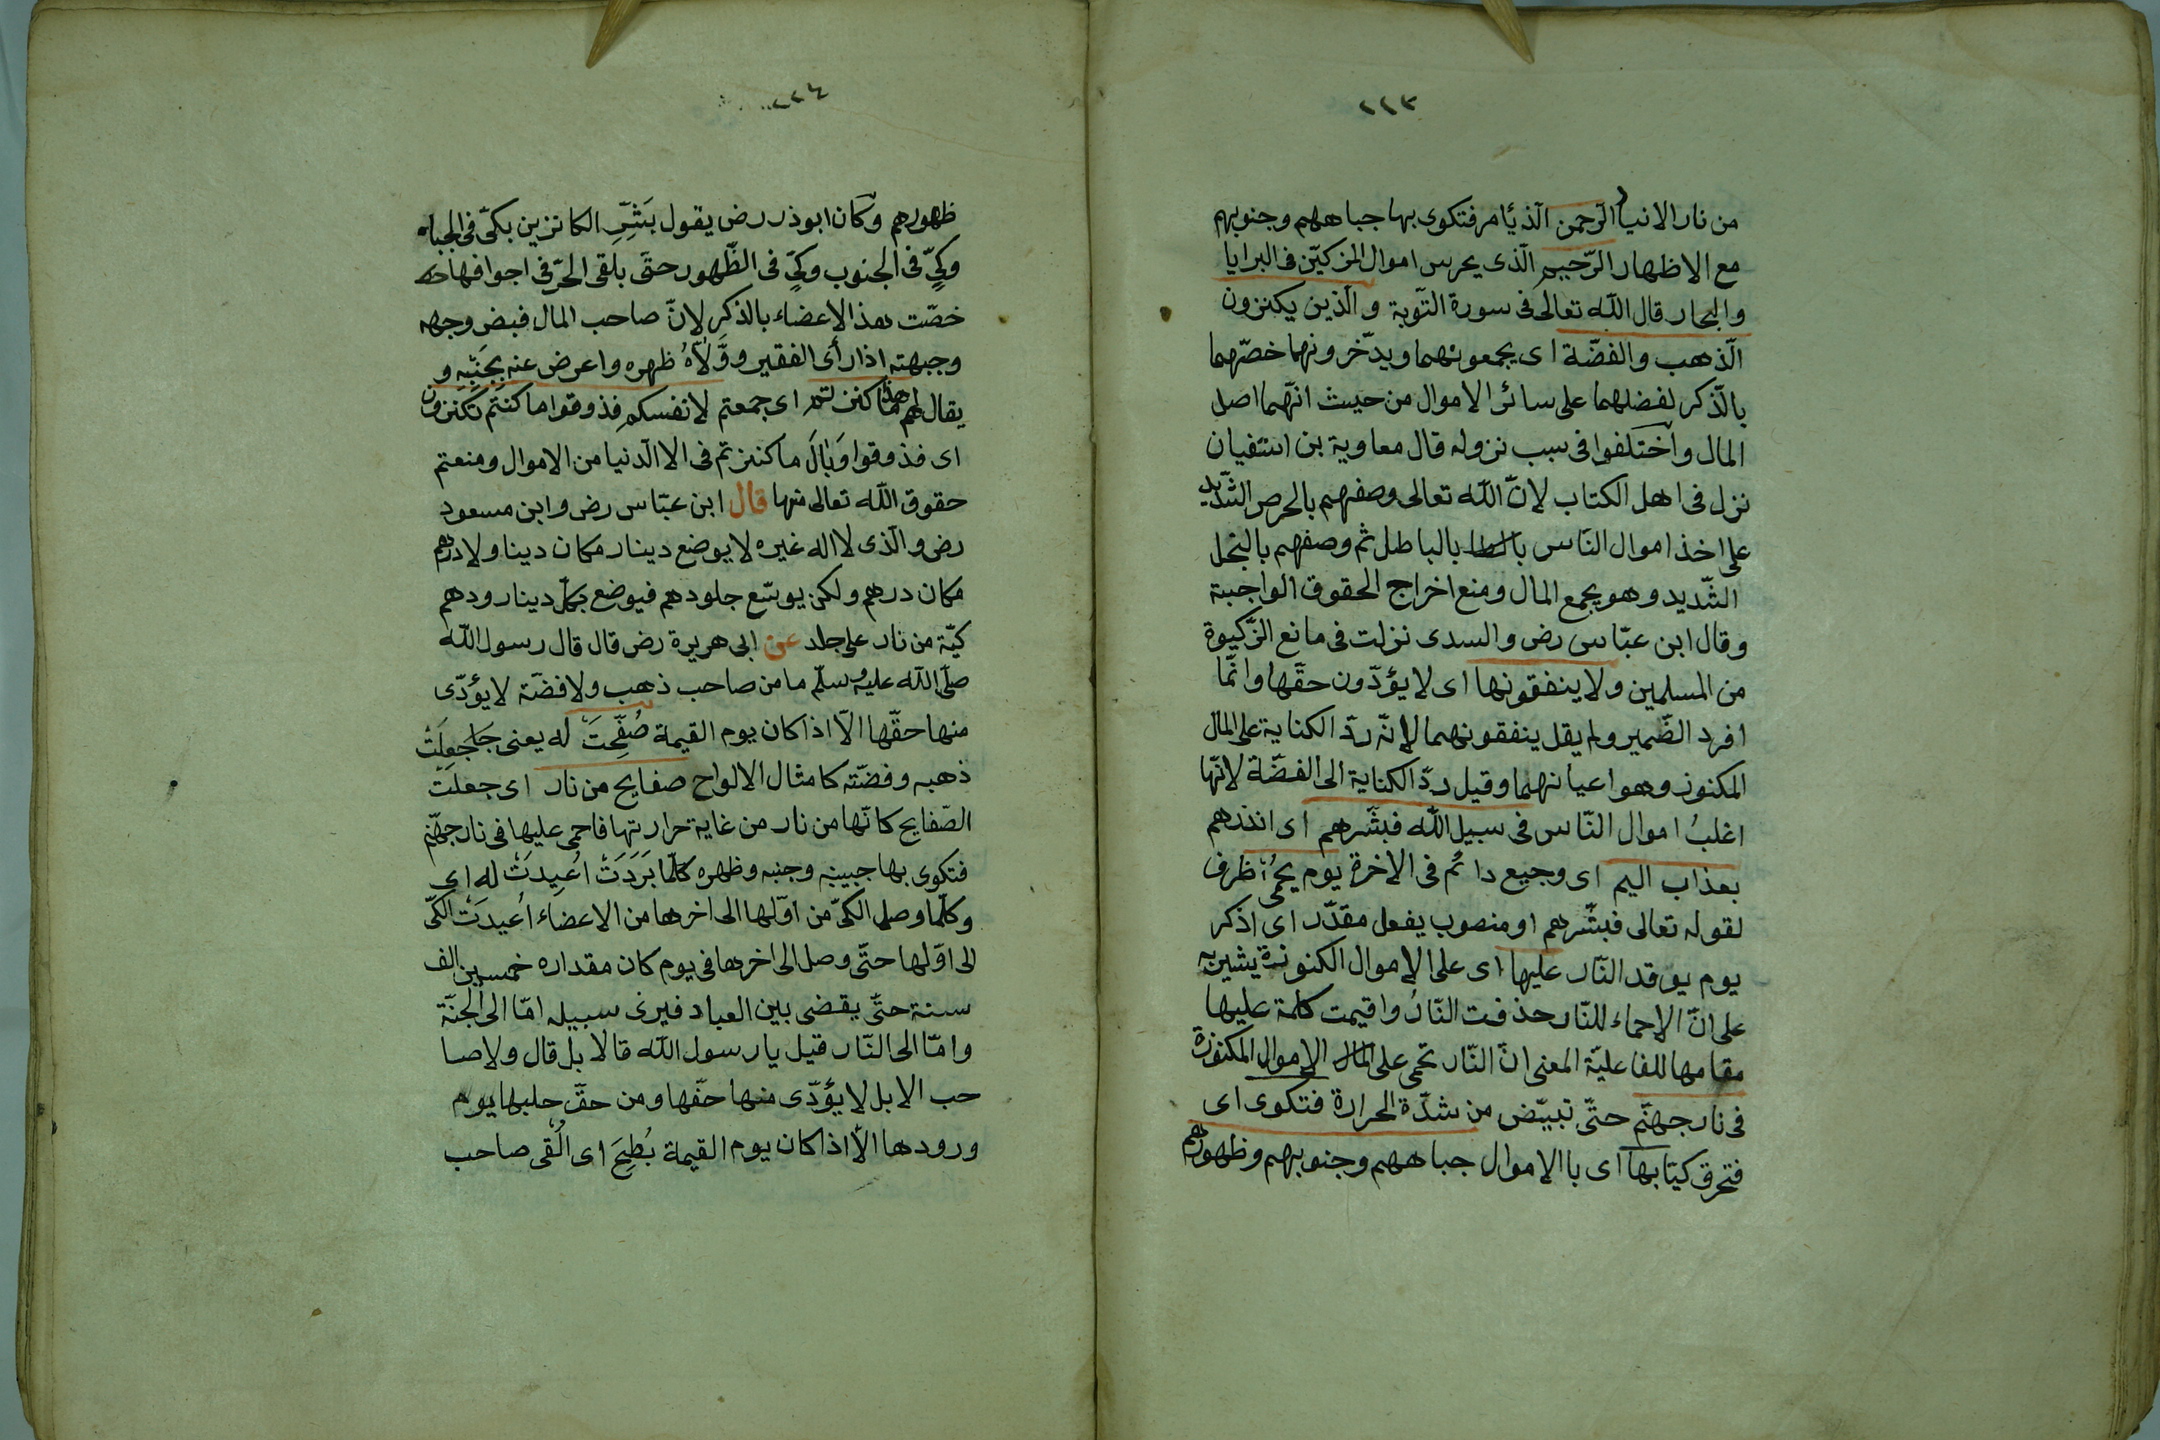 ٢٢٣
من نار الانيا الرّحمن الّذى ئامر فتكوى بها جباههم وجنوبهم
مع الاظهار الرّحيم الّذى يحرس اموال المزكيّن فى البرايا
والبحار قال اللّه تعالى فى سورة التّوبة والّذين يكنزون
الّذهب والفضّة اى يجمعونهما ويدّخرونهما خصّهما
بالذّكر لفضلهما على سائر الاموال من حيث انّهما اصل
المال واختلفوا فى سبب نزوله قال معاوية بن
نزل فى اهل الكتاب لانّ اللّه تعالى وصفهم بالحرص الشّديد
على اخذ اموال النّاس بالباطل ثم وصفهم بالبخل
الشّديد وهو يجمع المال ومنع اخراج الحقوق الواجبة
وقال ابن عبّاس رض والسدى نزلت فى مانع الزّكيوة
من المسلمين ولا ينفقونها اى لا يؤدّون حقّها وانّما
افرد الضّمير ولم يقل ينفقونهما لانّه ردّ الكناية على المال
المكنوز وهو اعيانهما وقيل ردّ الكناية الى الفضّة لانّها
اغلبُ اموال النّاس فى سبيل اللّه فبشّرهم اى انذرهم
بعذاب اليم اى وجيع دائم فى الاخرة يوم يحمى ظرف
لقوله تعالى فبشّرهم او منصوب بفعل مقدّر اى اذكر
يوم يوقد النّار عليها اى على الاموال الكنونة يشير به
على انّ الاحماء للنّار حذفت النّارُ واقيمت كلمة عليها
مقامها للفاعليّة المعنى انّ النّار تحمى على الاموال المكنوزة
فى نار جهنّم حتّى تبيّض من شدّة الحرارة فتكوى اى
فتحرق كيتا بها اى باالاموال جباههم وجنوبهم وظهورهم
٢٢٤
ظهورهم وكان ابوذر رض يقول بَشِّرِ الكانزين بكىّ فى الجباه
وكىٍّ فى الجنوب وكىٍّ فى الظّهور حتّى يلقى الحرّ فى اجوافها
خصّت هذ الاعضاء بالذكر لانّ صاحب المال قبض وجهه
وجبهته اذا رأى الفقير وَوَلّاهُ ظهره واعرض عنه بجَنْبِه و
يقال لهم هذا ما كنزتم اى جمعتم لانفسكم فذوقوا ما كنتم تكنزون
اى فذوقوا وَبالَ ما كنزتم فى الا الدّنيا من الاموال ومنعتم
حقوق اللّه تعالى منها قال ابن عبّاس رض وابن مسعود
رض والّذى لا اله غيره لا يوضع دينار مكان دينا ولا درهم
مكان درهم ولكن يوسّع جلودهم فيوضع بكلّ دينار ودهم
كيّة من نار على جلد عن ابى هريرة رض قال قال رسول اللّه
صلّى اللّه عليه وسلّم ما من صاحب ذهب ولا فضّة لا يؤدّى
منها حقّها الّا اذا كان يوم القيمة صُفّحِتَ له يعنى جَا جعِلَتْ
ذهبه وفضّته كامثال الالواح صفايح من نار اى جعلَتْ
الصّفايح كانّها من نار من غاية حرارتها فاحمى عليها فى نار جهنّم
فتكوى بها جبينه وجنبه وظهره كلّما بَرَدَتْ اُعيدَتْ له اى
وكلّما وصل الكىّ من اوّلها الى اخرها من الاعضاء اُعيدَت الكىّ
الى اوّلها حتّى وصل الى اخرها فى يوم كان مقداره خمسين الف
سنة حتّى يقضى بين العباد فيرى سبيله امّا الى الجنّة
وامّا الى النّار قيل يا رسول اللّه قالابل قال ولا صا
حب الابل لا يؤدّى منها حقّها ومن حقّ حلبها يوم
ورودها الّا اذا كان يوم القيمة بُطِحَ اى اُلْقى صاحب